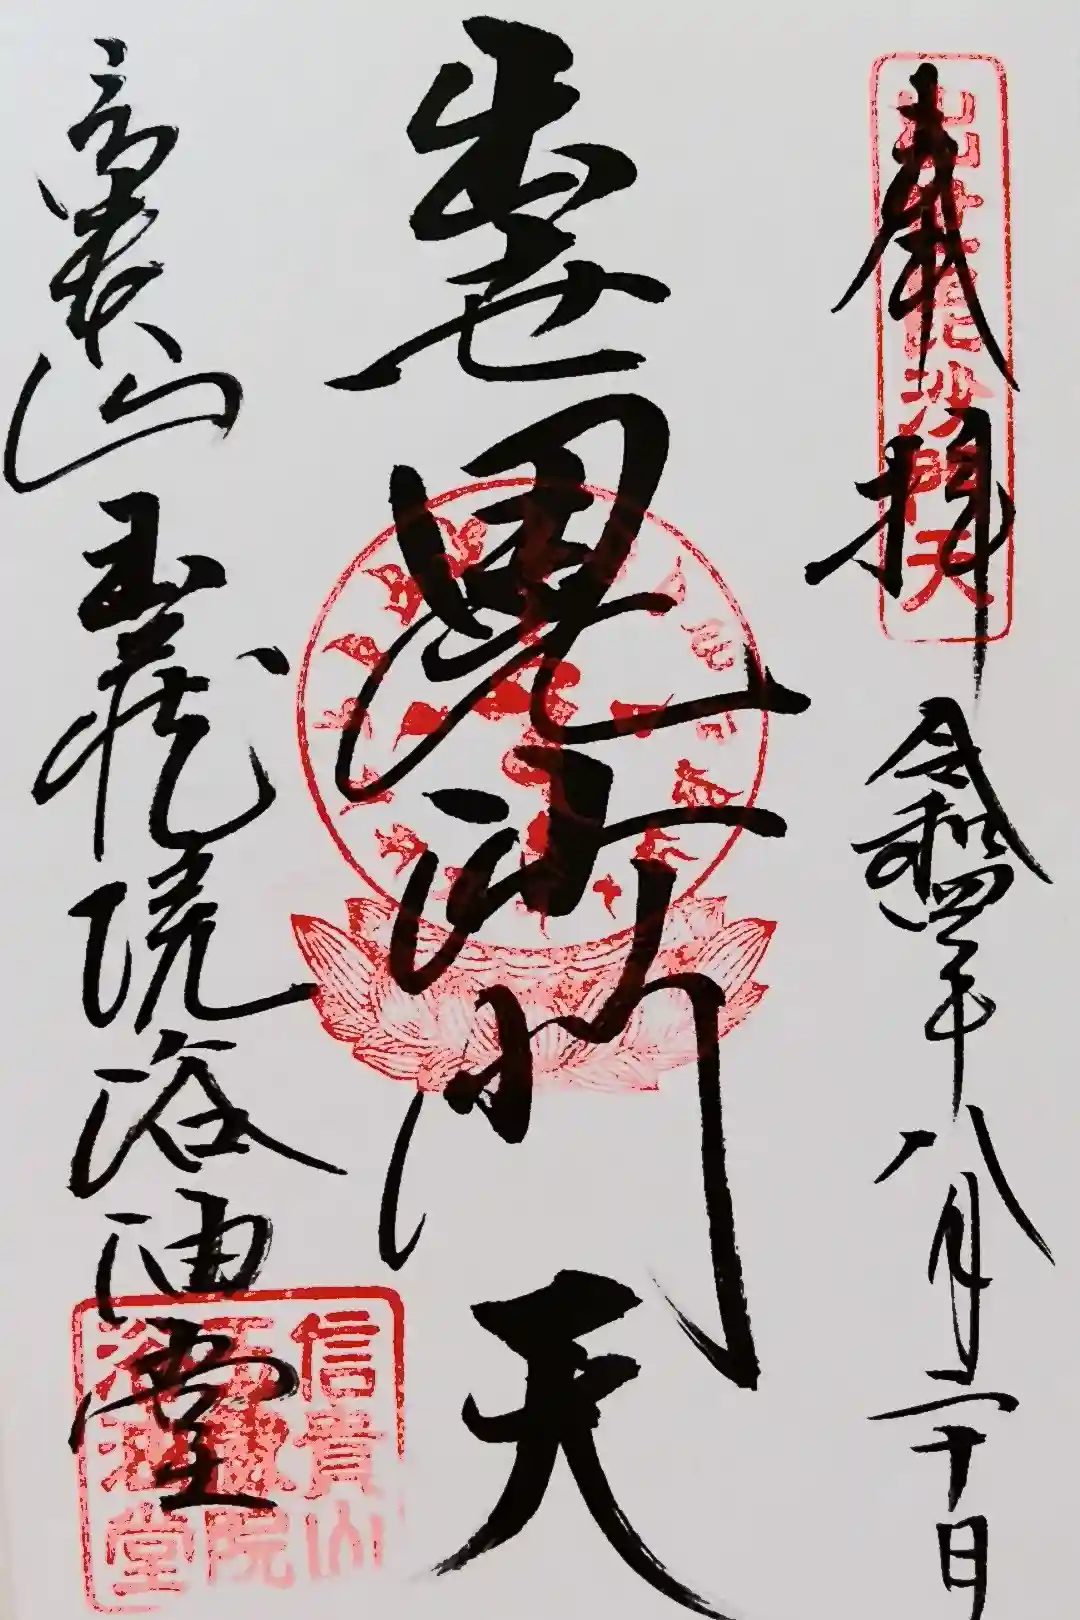 奉拝
令和四年八月二十日
出世毘沙門天
信貴山
玉蔵院浴油堂
出世毘沙門天
信貴山
玉蔵院
浴油堂